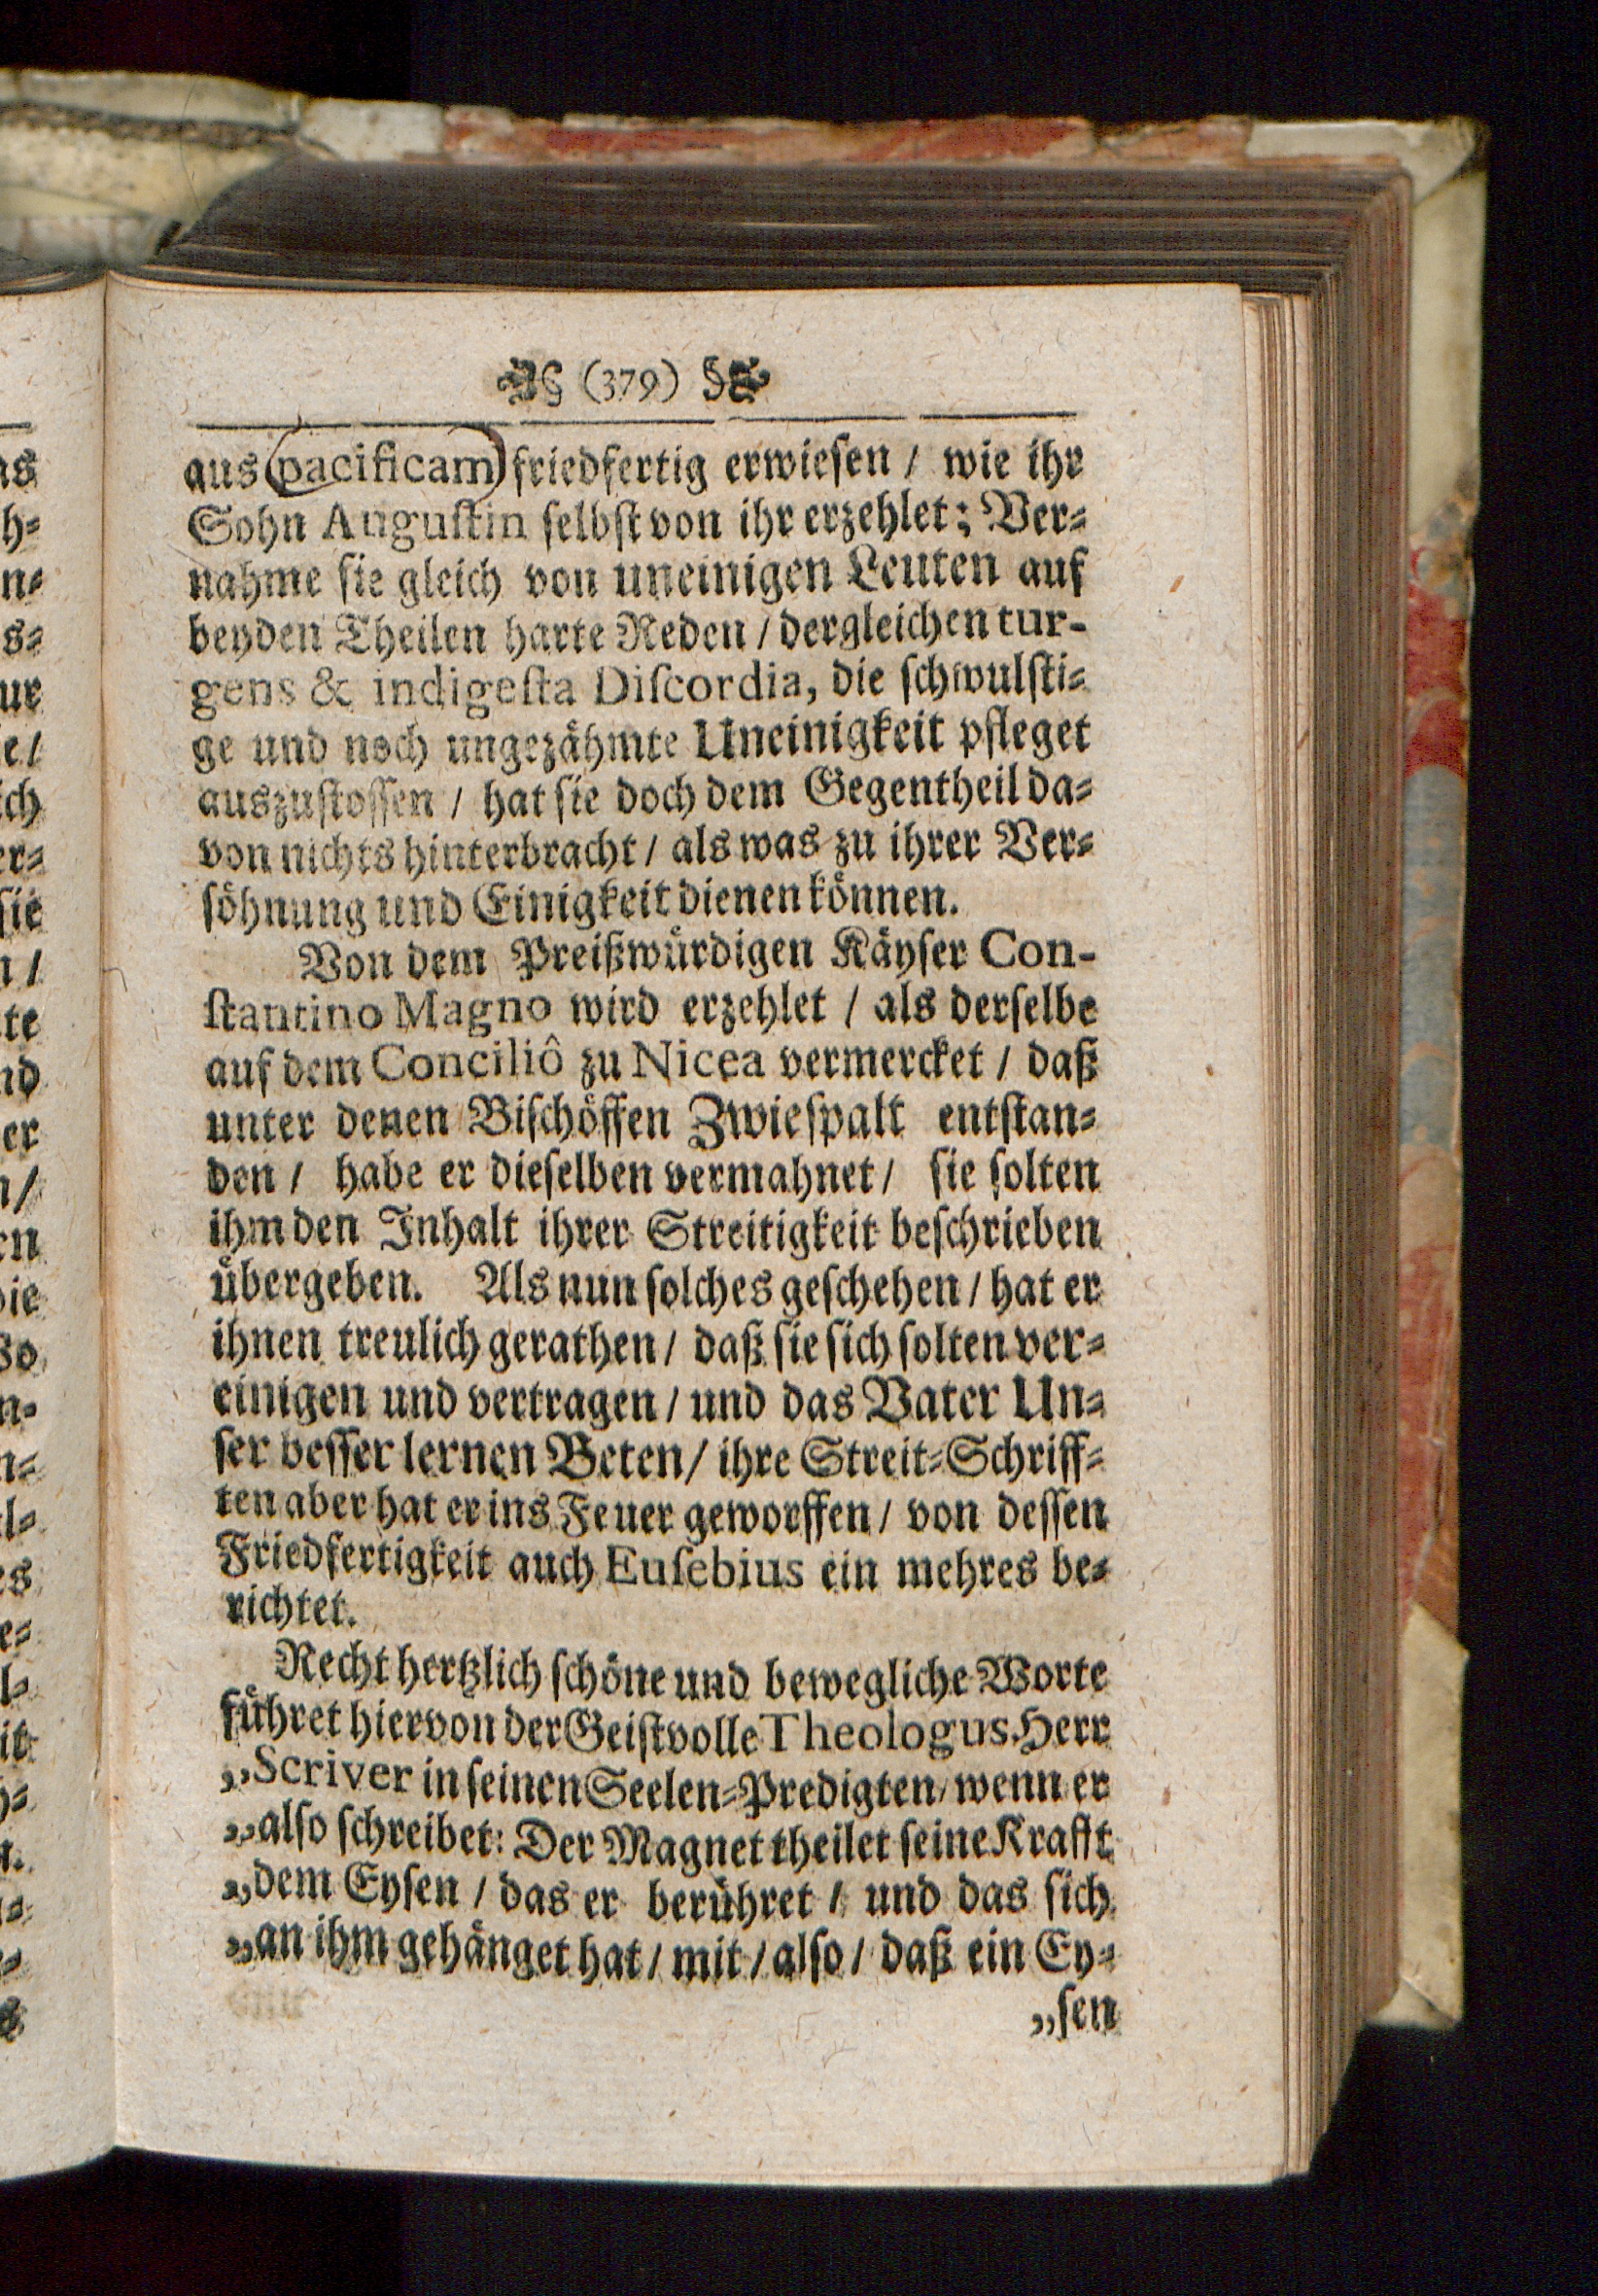 (379)
aus (pacificam) friedfertig erwiesen / wie ihr
Sohn Augustin selbst von ihr erzehlet; Ver-
nahme sie gleich von uneinigen Leuten auf
beyden Theilen harte Reden / dergleichen tur-
gens & indigesta Discordia, die schwulsti-
ge und noch ungezähmte Uneinigkeit pfleget
auszustossen / hat sie doch dem Gegentheil da-
von nichts hinterbracht / als was zu ihrer Ver-
söhnung und Einigkeit dienen können.
Von dem Preißwürdigen Käyser Con-
stantino Magno wird erzehlet / als derselbe
auf dem Conciliô zu Nicea vermercket / daß
unter denen Bischöffen Zwiespalt entstan-
den / habe er dieselben vermahnet / sie solten
ihm den Inhalt ihrer Streitigkeit beschrieben
übergeben. Als nun solches geschehen / hat er
ihnen treulich gerathen / daß sie sich solten ver-
einigen und vertragen / und das Vater Un-
ser besser lernen Beten / ihre Streit-Schriff-
ten aber hat er ins Feuer geworffen / von dessen
Friedfertigkeit auch Eusebius ein mehres be-
richtet.
Recht hertzlich schöne und bewegliche Worte
führet hiervon der Geistvolle Theologus Herr
„Scriver in seinen Seelen-Predigten / wenn er
„also schreibet: Der Magnet theilet seine Krafft
„dem Eysen / das er berühret / und das sich
„an ihm gehänget hat / mit / also / daß ein Ey-
„sen